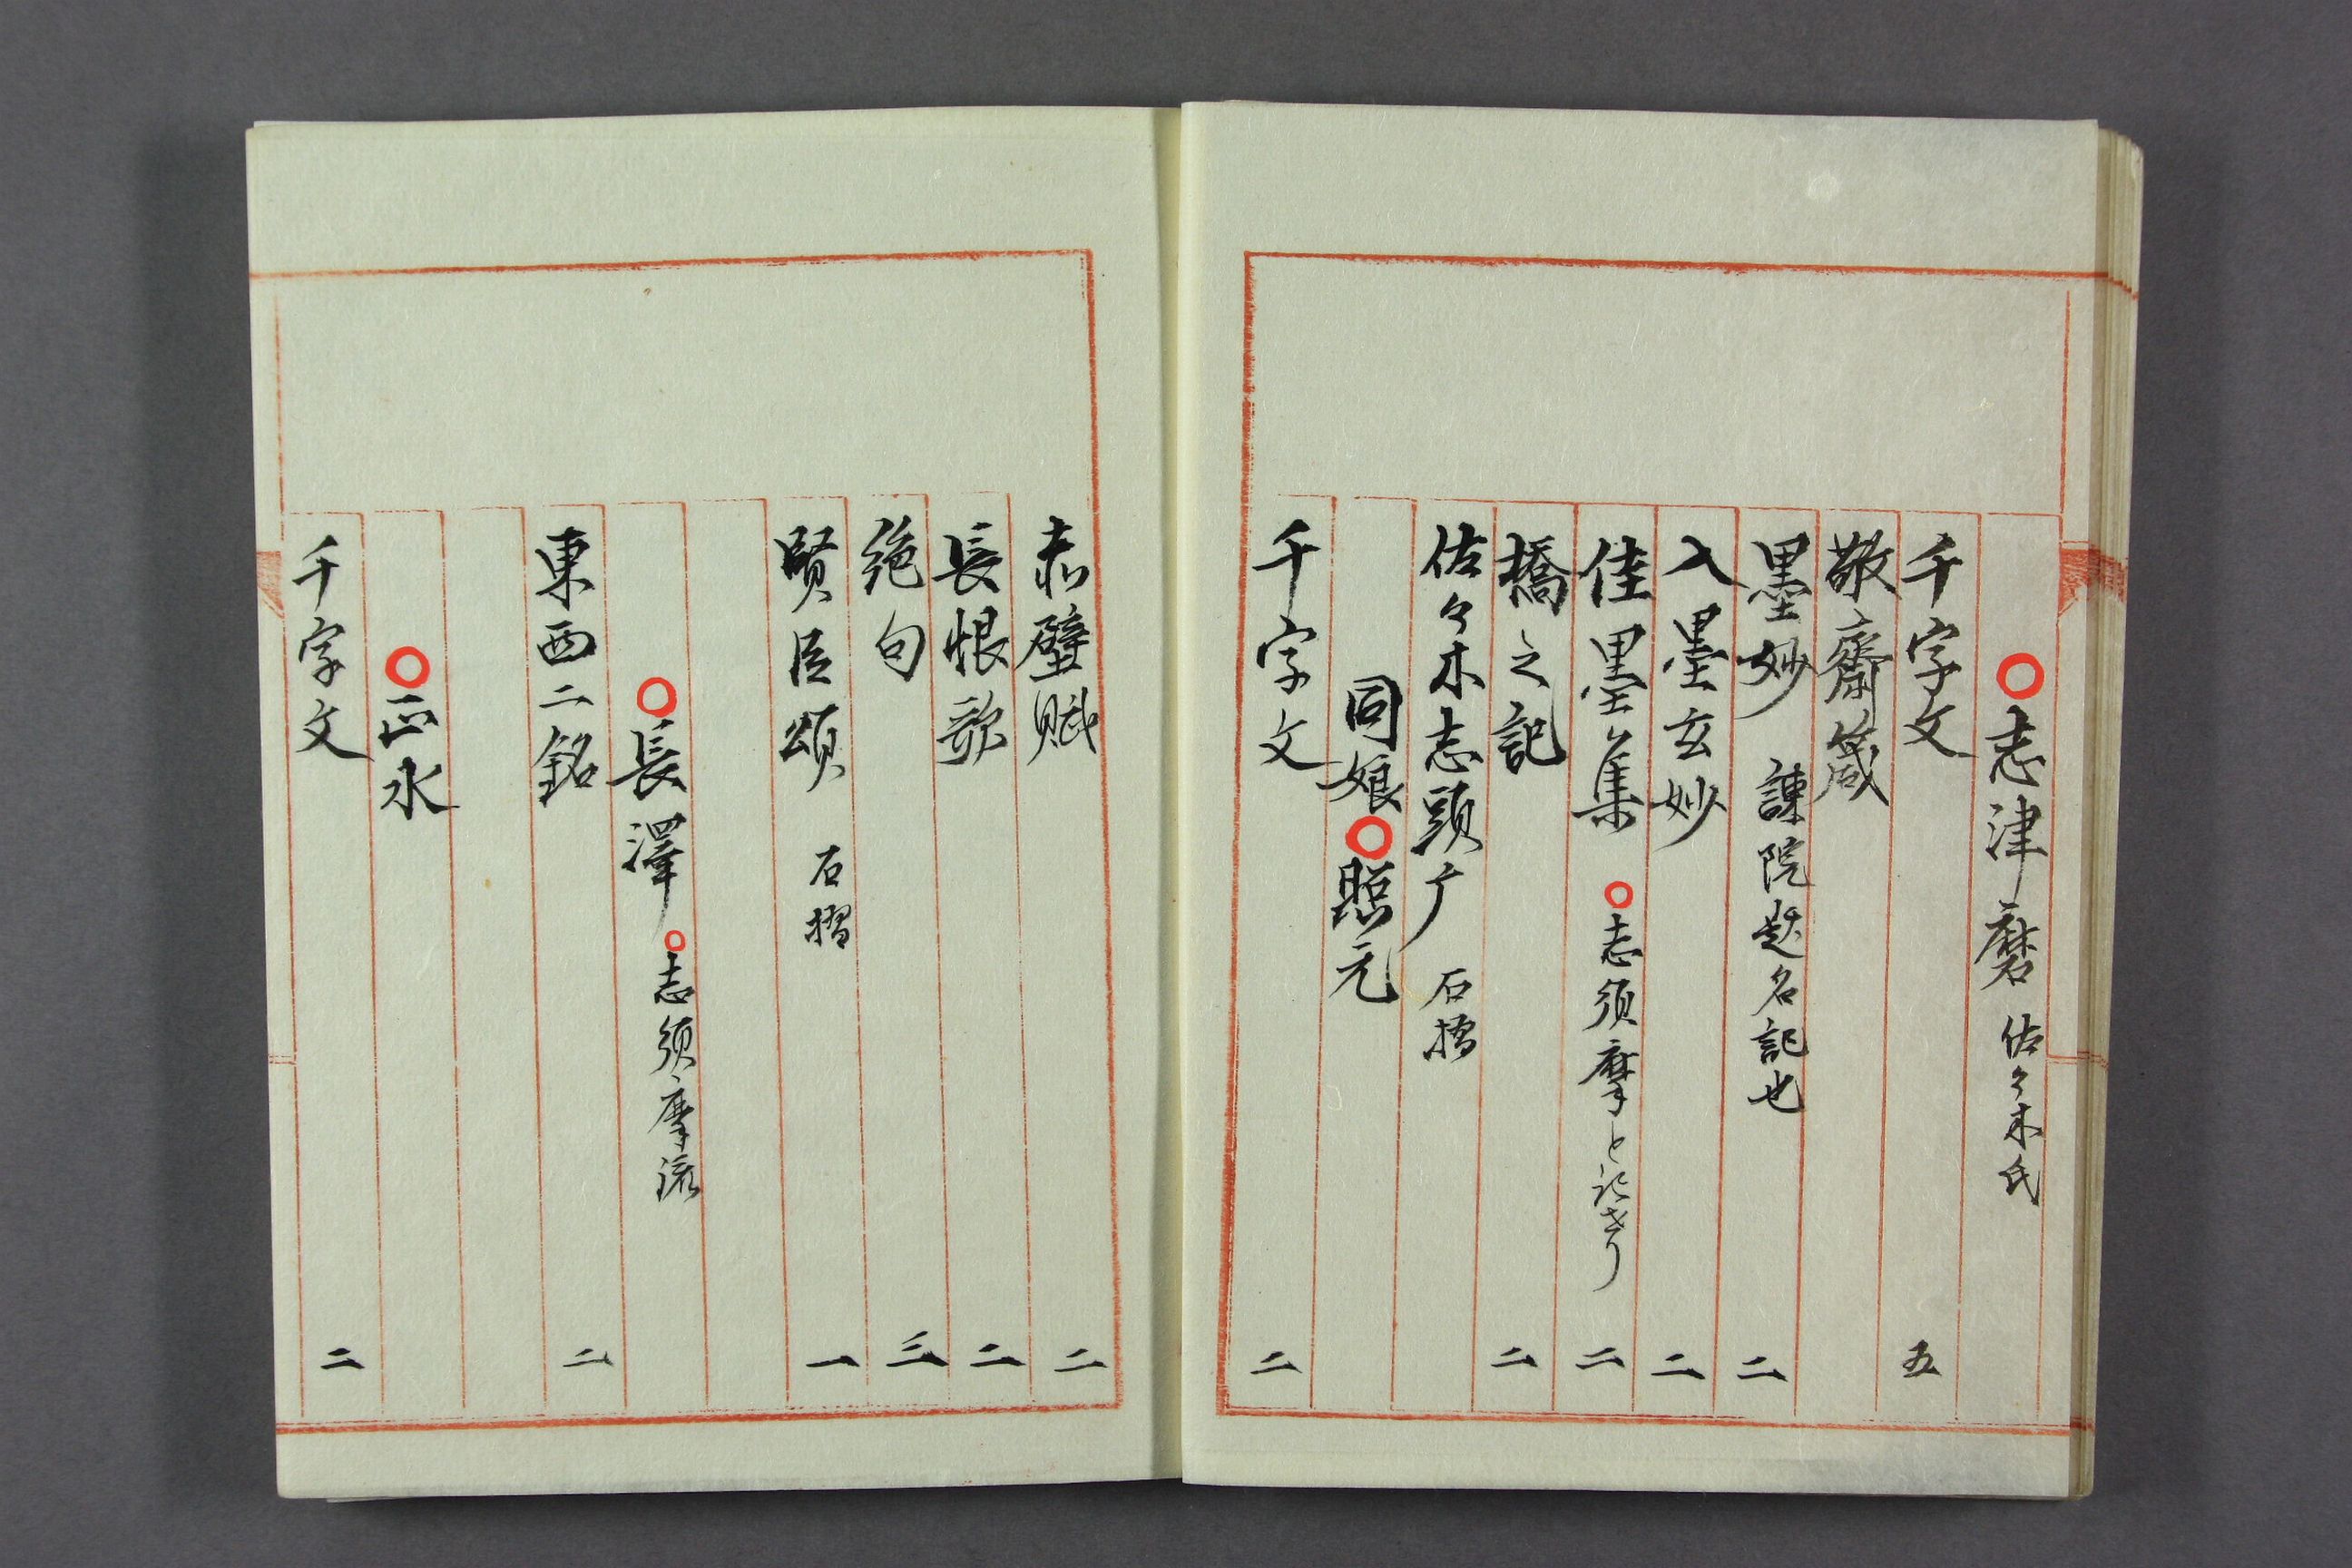 ○志津磨 佐々木氏
千字文 五
敬齋箴
墨妙 諌院題名記也 二
入墨玄妙 二
佳墨集 ○志須摩と記せり 二
橋之記 二
佐々木志頭广 石摺
同娘○照元
千字文 二
赤壁賦 二
長恨歌 二
絶句 三
賢臣頌 石摺 一
○長澤 ○志須摩流
東西二銘 二
○正水
千字文 二